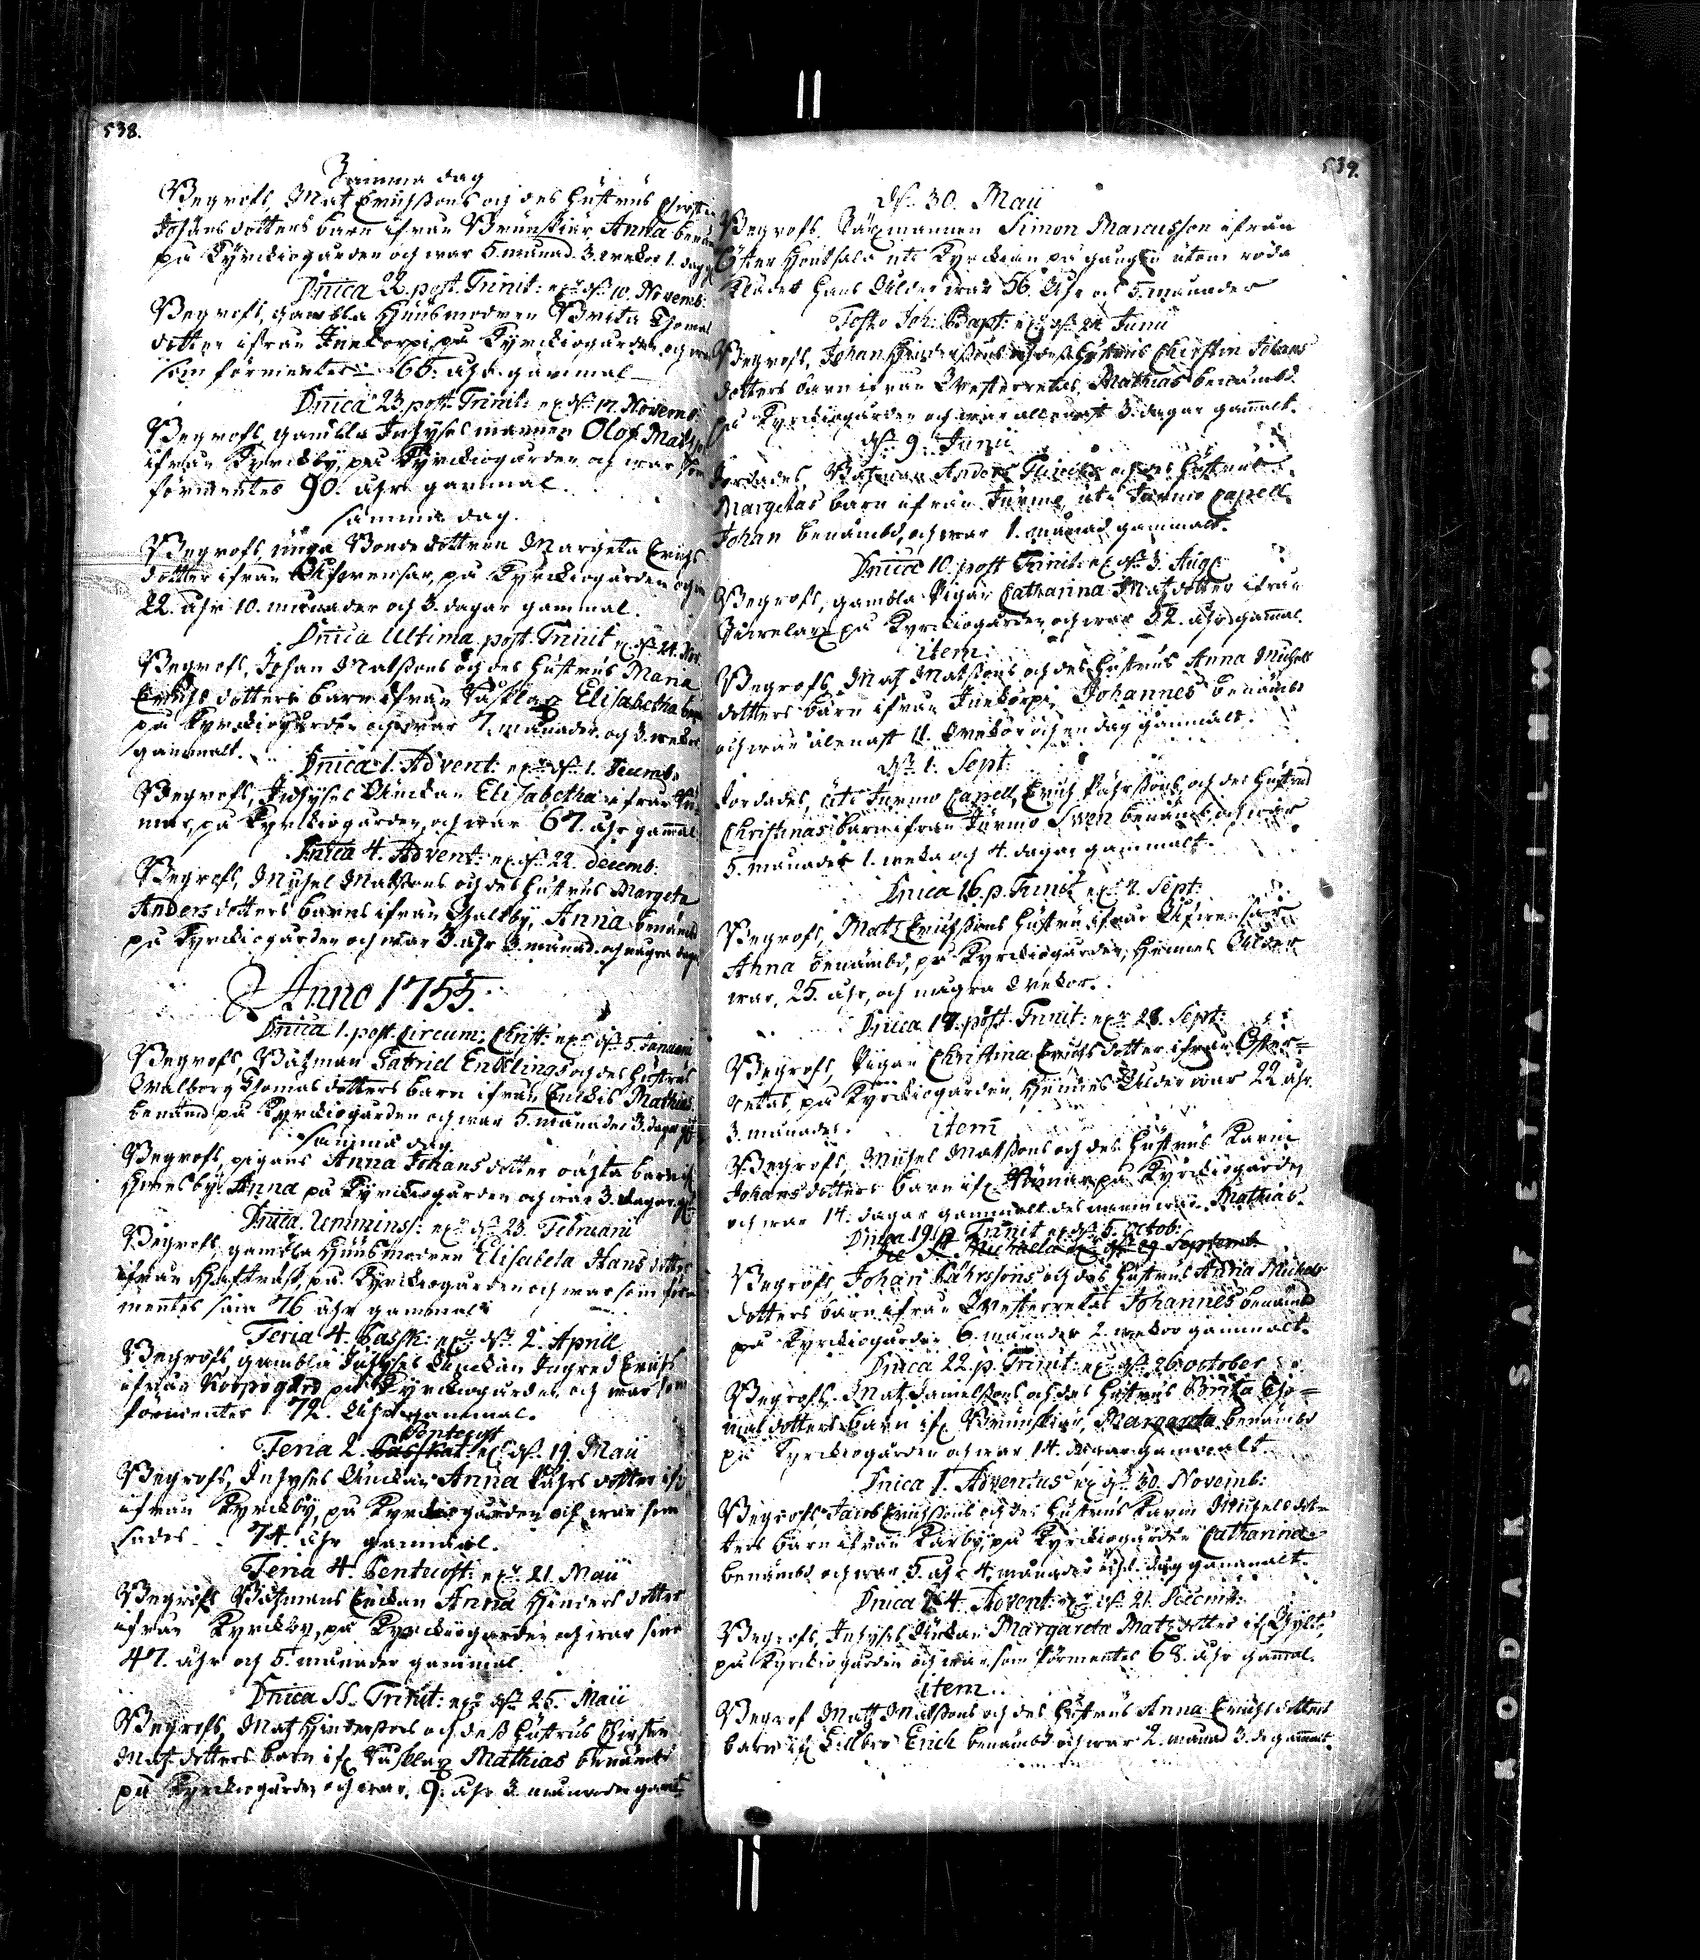 538.
Samma dag
Begrofs, Matz Erichssons och des hustrus Chirstin
Johans dotters barn ifrån Brunskiär Anna benäm
på Kyrckiogården och war 5. månad. 3. wekor 1. dag g
Dnica 22. post. Trinit: ex. d. 10. Novemb:
Begrofs, gambla Huusmodren Brita Thomas
dotter ifrån Finkorpi, på Kyrckiogården, och war
som förmentes 66. åhr gammal
Dnica 23. post. Trinit: ex. d. 17. Novemb:
Begrofs, gambla Inhyses mannen Olof Mats
ifrån Kyrckby, på Kyrckiogården och war som
förmentes 90. åhr gammal.
samma dag.
Begrofs, unga Bonde dottren Margeta Erichs
dotter ifrån på Kyrckiogården och w
22. åhr 10. månader och 3. dagar gammal.
Dnica Ultima post. Trinit ex. d. 24. Nov.
Begrofs, Johan Matssons och des hustrus Maria
Erichs dotters barn ifrån Elisabetha
på Kyrckiogården och war 7. månader och 3. wekor
gammalt.
Dnica 1. Advent: ex. d. 1. Decemb.
Begrofs, Inhyses Änckan Elisabetha ifrån
mar, på Kyrckiogården, och war 67. åhr gamal
Dnica 4. Advent: ex. d. 22. Decemb:
Begrofs, Michel Matssons och des hustrus Margeta
Anders dotters barns ifrån Anna benämd
på Kyrckiogården och war 3. åhr 3. månad. och några dag
Anno 1755.
Dnica 1. post. Circum: Christ: ex. d. 5. Januari
Begrofs, Båtzman Gabriel Encklings och des hustrus
Walborg Thomas dotters barn ifrån Enckis Mathias
benämd på Kyrckiogården och war 5. månader 3. dagar g
samma dag
Begrofs, pigans Anna Johans dotter oächta barn if
Anna på Kyrckiogården och war 3. dagar g
Dnica. Reminiss: ex. d. 23. Februarii
Begrofs, gambla Huusmodren Elisabeta Hans dotter
ifrån på Kyrckiogården och war som för
mentes som 76 åhr gammal
Feria 4. Pasch: ex. d. 2. April
Begrofs, gambla Inhyses Änckan Ingred Erichs
ifrån Korpogård på Kyrckiogården och war som
förmentes 72. åhr gammal.
Pentecost
Feria 2. Paschat. ex. d. 19. Maii
Begrofs, Inhyses Änckan Anna Påhrs dotter
ifrån Kyrckby, på Kyrckiogården och war som
sades 74. åhr gammal.
Feria 4. Pentecost: ex. 21. Maii
Begrofs Båtzmans Änckan Anna Hinders dotter
ifrån Kyrckby, på Kyrckiogården och war
47. åhr och 5. månader gammal.
Dnica SS. Trinit: ex. d. 25. Maii
Begrofs, Matz Hinderssons och dess hustrus Chirstin
Matz dotters barn if. Mathias benämd
på Kyrckiogården och war. 9. åhr 3. månader gamt
539.
d. 30. Maii
Begrofs, mannen Simon Marcusson ifrån
uti Kyrckian på gången utom
hans ålder war 56. åhr och 5. månader
Festo Joh: Bapt: ex. d. 24 Junii
Begrofs, Johan Hinderssons och dess hustrus Chirstin Johans
dotters barn ifrån Westerretais Mathias benämd.
på Kyrckiogården och war allenast 3. dagar gamalt.
d. 9. Junii
Jordades, Båtzman Anders och des hustrus
Margetas barn ifrån Jurmo uti Jurmo Capell
Johan benämbd, och war 1. månad gammalt.
Dnica 10. post Trinit: ex. d. 3. Aug:
Begrofs, gambla Pigan Catharina Matz dotter ifrån
på Kyrckiogården, och war 52. åhr gamal.
item.
Begrofs, Matz Matssons och des hustrus Anna Michels
dotters barn ifrån Finkorpi Johannes benämd
och war alenast 11. wekor och en dag gammalt.
d. 1. Sept:
Jordades, uti Jurmo Capell, Erich Påhrssons, och des hustrus
Christinas barn ifrån Jurmo Swen benämd och war
5. månader 1. weka och 4. dagar gammalt.
Dnica 16. p. Trinit ex. Sept:
Begrofs, Matz Erichssons hustru ifrån
Anna benämbd, på Kyrckiogården, hennes ålder
war, 25. åhr, och några wekor.
Dnica 18. post. Trinit: ex. 28. Sept:
Begrofs, Pigan Christina Erichs dotter ifrån Öster=
retais, på Kyrckiogården, hennes ålder war 22 åhr.
3. månader. item
Begrofs, Michel Matssons och des hustrus Karin
Johans dotters barn if. på Kyrckiogården
och war 14. dagar gammalt des namn war Mathias.
Dnica 19 p Trinit ex d. 5. Octob:
Die St. Michaelis ex. d. 29 Septemb.
Begrofs Johan Påhrssons och des hustrus Anna Michels
dotters barn ifrån Westerretais Johannes benämd
på Kyrckiogården 6. månader 2. wekor gammalt.
Dnica 22. p. Trinit: ex. d. 26. october
Begrofs, Matz Danielssons och des hustrus Brita Tho=
mas dotters barn if. Brunskiär, Margareta benämbd
på Kyrckiogården och war 14. dagar gammalt.
Dnica 1. Adventus ex d. 30. Novemb:
Begrofs Jacob Erichssons och des hustrus Karin Michels dot=
ters barn ifrån på Kyrckiogården Catharina
benämbd och war 5. åhr 4. månader och 1. dag gammalt.
Dnica 4. Advent: ex. d. 21. Decemb:
Begrofs, Inhyses Änckan Margareta Matz dotter if.
på Kyrckiogården och war som förmentes 68. åhr gamal.
item.
Begrof Matz Matssons och des hustrus Anna Erichs dotters
barn if. Erich benämbd och war 2. månad 3. d. gammalt.
KODAK SAFETY FILM